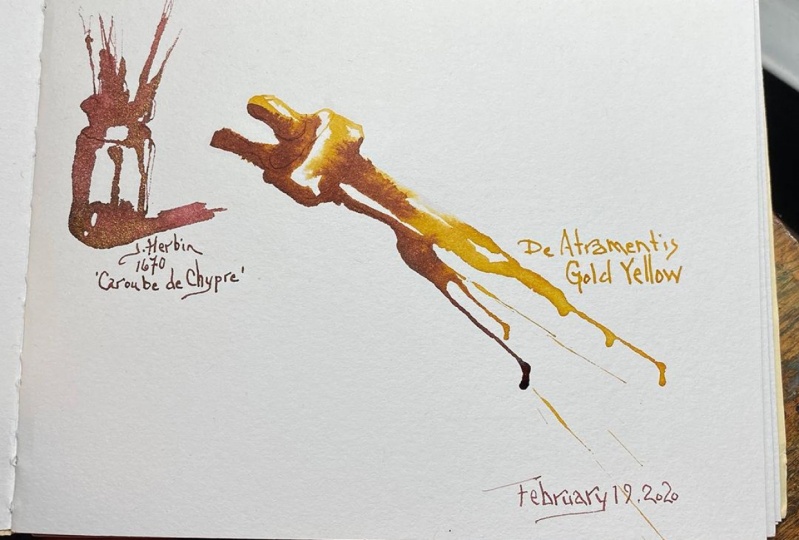 J. Herbin
1670
'Caroube de Chypre'
De Atramentis
Gold Yellow
February 19. 2020